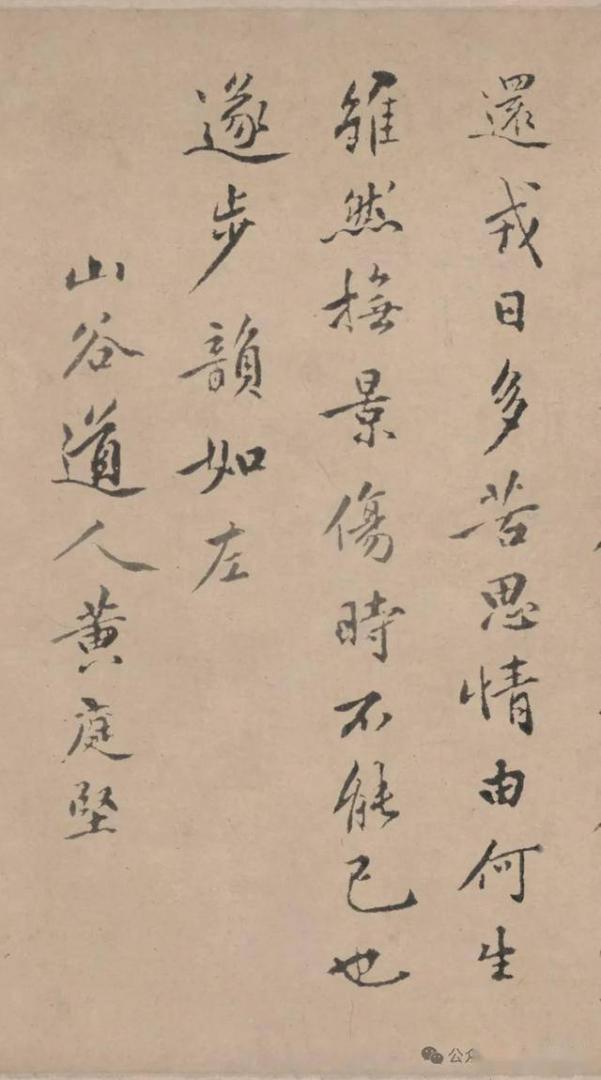 還戎日多苦思情由何生
雖然撫景傷時不能已也
遂步韻如左
山谷道人黄庭堅
公众